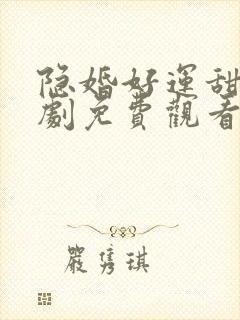 隐婚好運甜
劇免費觀看
嚴隽琪